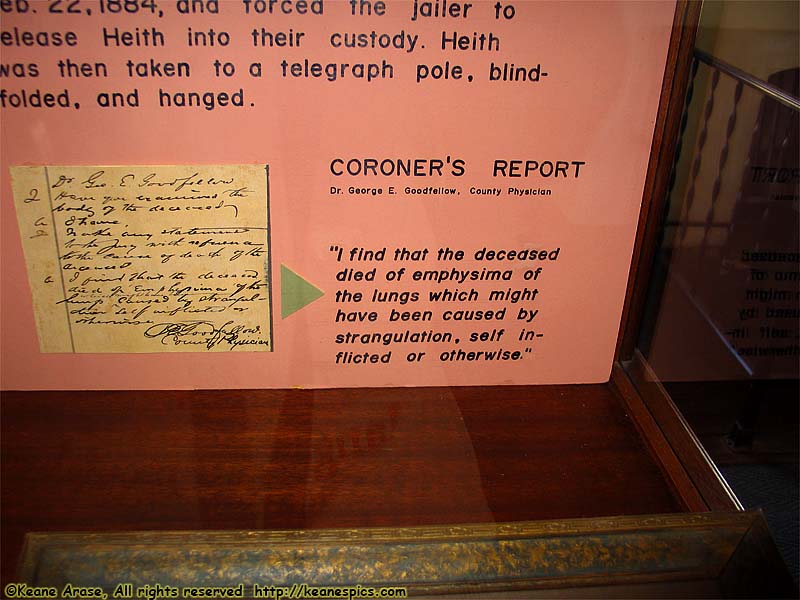 eb. 22, 1884, and forced the jailer to
elease Heith into their custody. Heith
was then taken to a telegraph pole, blind-
folded, and hanged.
CORONER'S REPORT
Dr. George E. Goodfellow, County Physician
Dr. Geo. E Goodfellow
Q Have you examined the
body of the deceased
a I have.
Q Make any statement
to the jury with reference
to the cause of death of the
deceased
a I find that the deceased
died of Emphysima of the
lungs caused by strangul-
ation self inflicted or
otherwise
Goodfellow
County Physician
"I find that the deceased
died of emphysima of
the lungs which might
have been caused by
strangulation, self in-
flicted or otherwise."
©Keane Arase, All rights reserved http://keanespics.com